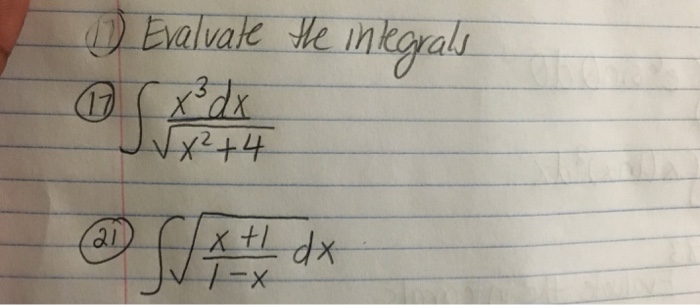 (1) Evaluate the integrals
(17) ∫ x³dx / √(x²+4)
(21) ∫ √((x+1)/(1-x)) dx